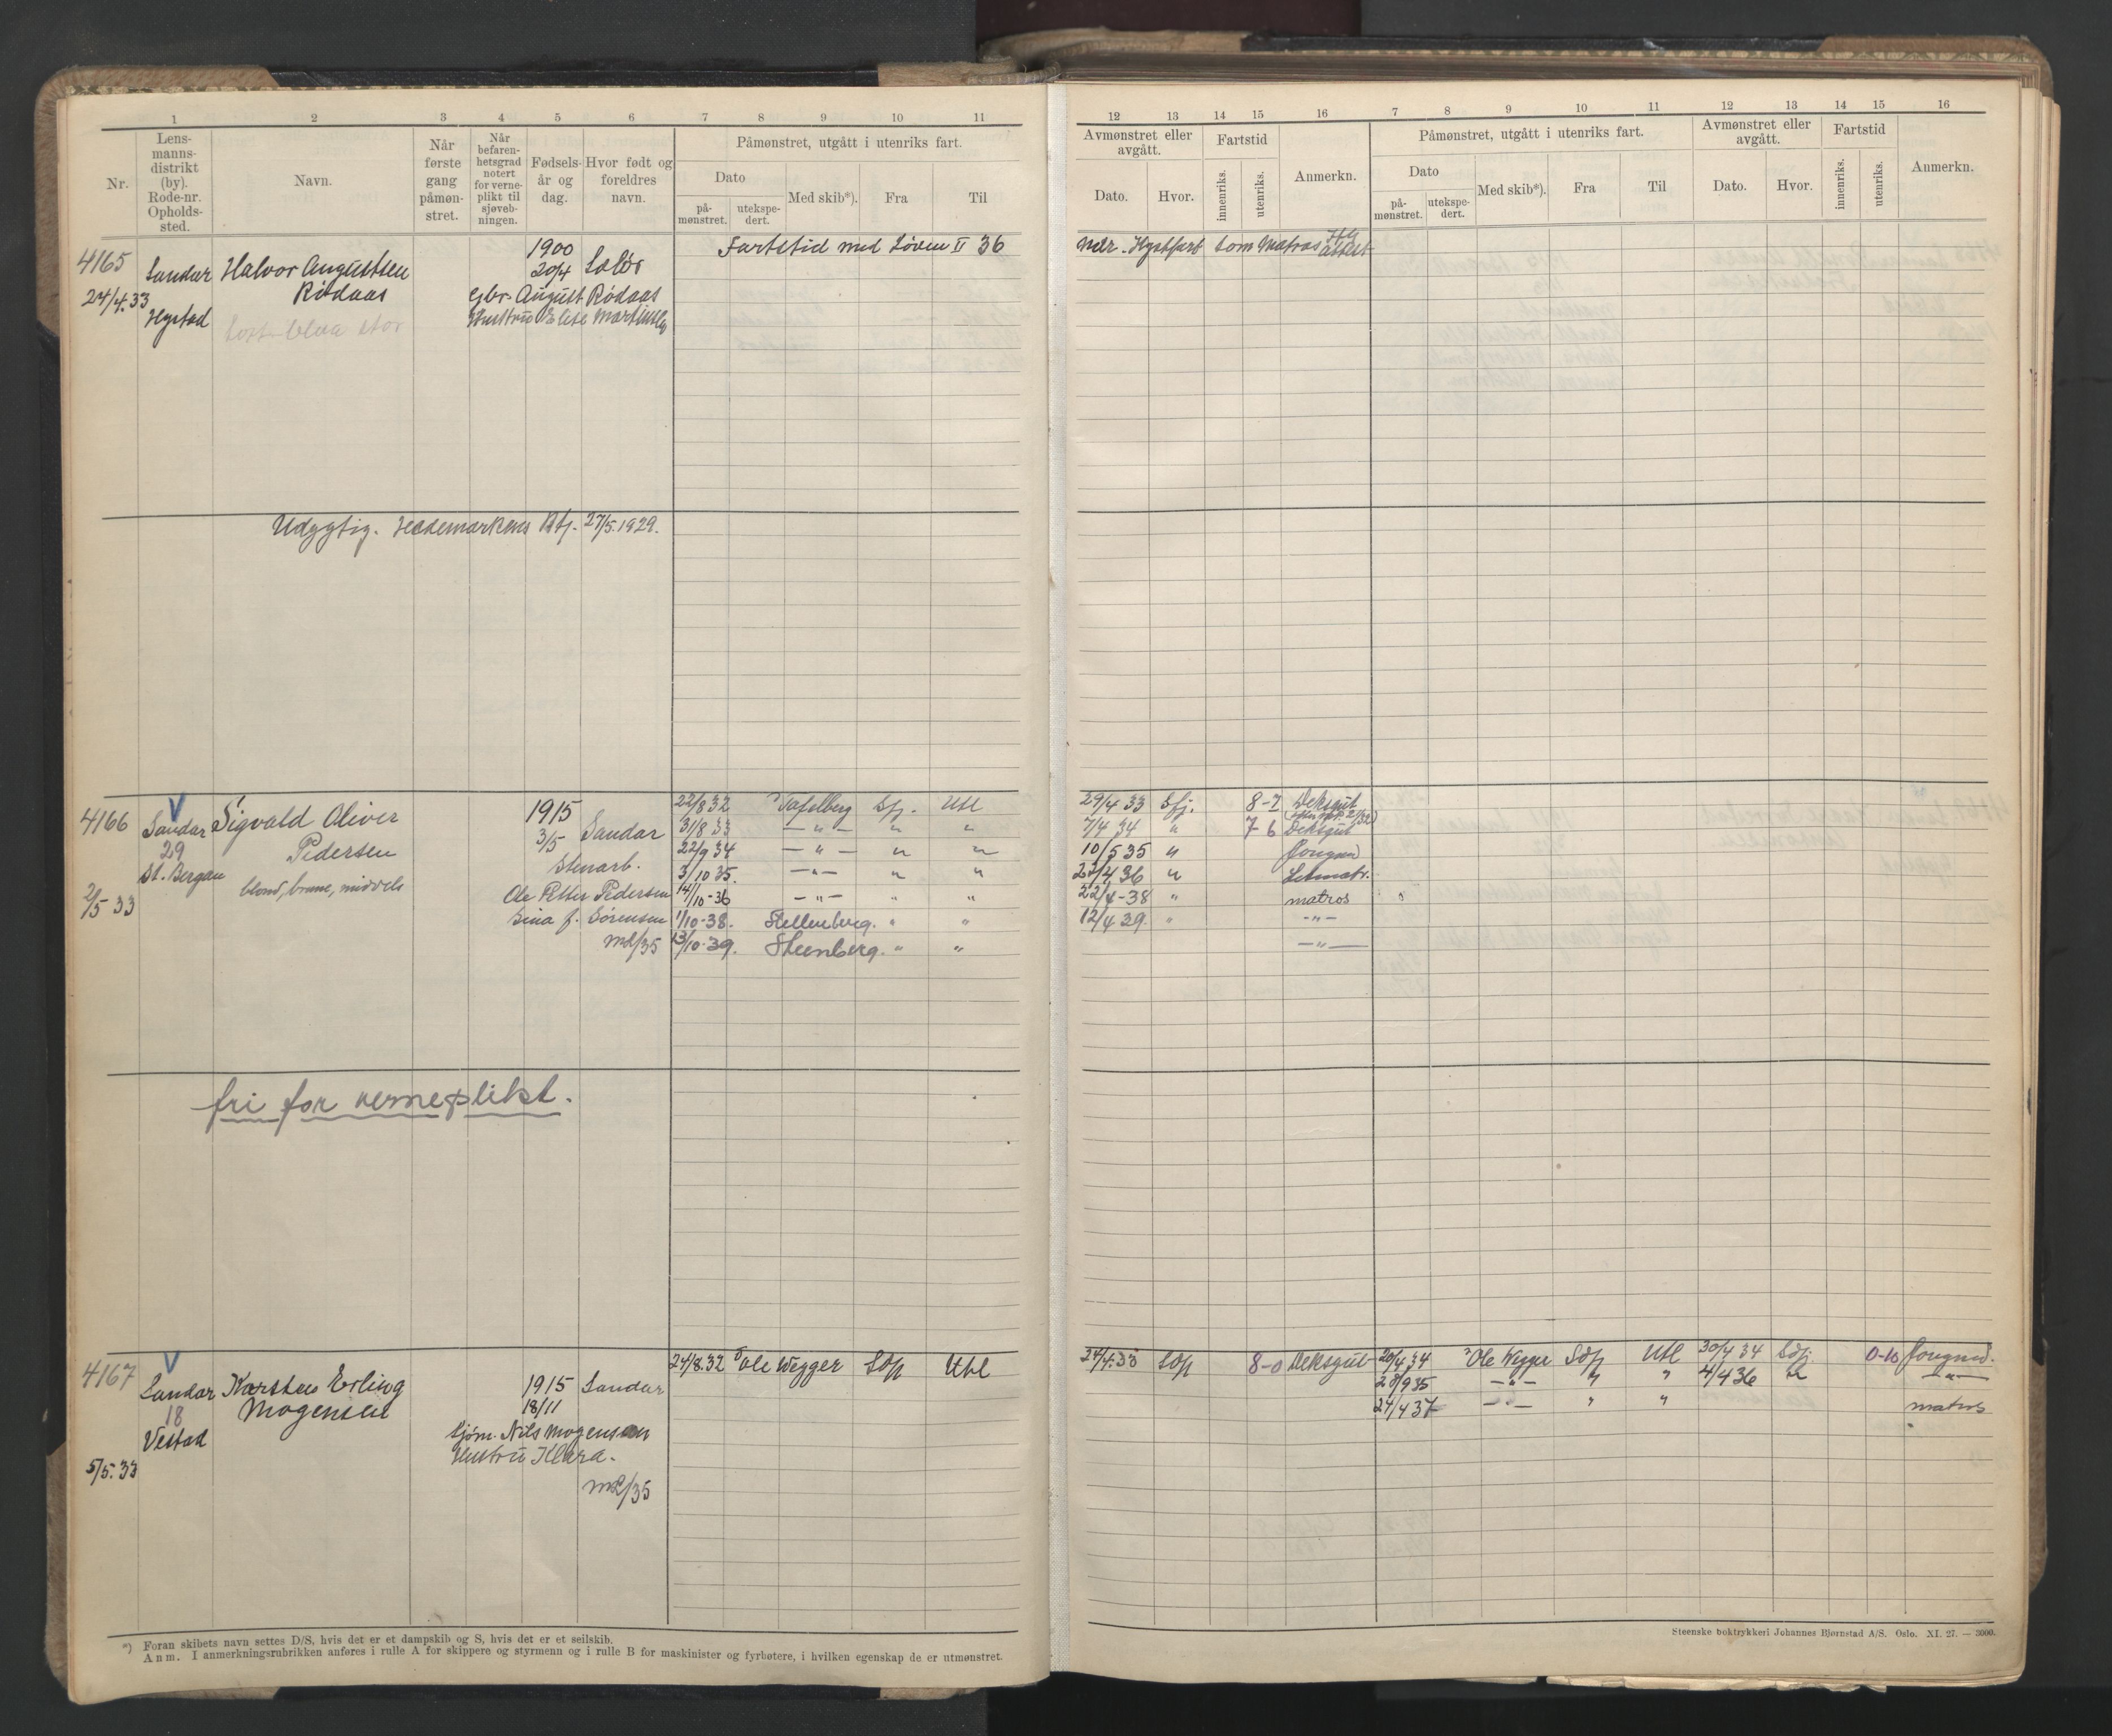 1 2 3 4 5 6 7 8 9 10 11
Nr.
Lens-
manns-
distrikt
(by).
Rode-nr.
Opholds-
sted.
Navn.
Når
første
gang
påmøn-
stret.
Når
befaren-
hetsgrad
notert
for verne-
plikt til
sjøveb-
ningen.
Fødsels-
år og
dag.
Hvor født og
foreldres
navn.
Påmønstret, utgått i utenriks fart.
Dato
på-
mønstret.
utekspe-
dert.
Med skib*).
Fra
Til
4165
24/4.33
Sandar
Hystad
Halvor Augustsen
Rødaas
1900
20/4 Solør
Gbr. August Rødaas
Hustru Elise
Fartstid med Løven II 36
Udygtig. Hedemarkens Btj. 27/5.1929.
4166
2/5 33
V
Sandar
29
St. Bergan
Sigvald Oliver
Pedersen
blond, brune, middels
1915
3/5 Sandar
Stenarb.
Ole Petter Pedersen
f. Sørensen
m2/35
22/8 32 Tafelberg Sfj. Utl
31/8 33 — " — " "
22/9 34 — " — " "
3/10 35. — " — " "
14/10-36 — " — " "
1/10-38. Stellenberg. " "
13/10-39. Steenberg. " "
fri for verneplikt.
4167
5/5.33
V
Sandar
18
Vestad
Karsten Erling
Mogensen
1915 Sandar
18/11
Sjøm. Nils Mogensen
Hustru Klara.
m2/35
24/8.32 Ole Wegger Utl
*) Foran skibets navn settes D/S, hvis det er et dampskib og S, hvis det er et seilskib.
Anm. I anmerkningsrubrikken anføres i rulle A for skippere og styrmenn og i rulle B for maskinister og fyrbøtere, i hvilken egenskap de er utmønstret.
12 13 14 15 16 7 8 9 10 11 12 13 14 15 16
Avmønstret eller
avgått.
Dato.
Hvor.
Fartstid
innenriks.
utenriks.
Anmerkn.
Påmønstret, utgått i utenriks fart.
Dato
på-
mønstret.
utekspe-
dert.
Med skib*).
Fra
Til
Avmønstret eller
avgått.
Dato.
Hvor.
Fartstid
innenriks.
utenriks.
Anmerkn.
mdr. Kystfart som Matros attest
29/4 33 Sfj. 8-7 Deksgut
7/4 34 " 7-6 Deksgut
10/5 35 " Jungmd
22/4 36 " Letmatr.
22/4-38 " matros
12/4 39. " — " —
— " —
24/4.33 8-0 Deksgut
20/4 34 Ole Wegger Utl 30/4 34 0-10 Jungmd.
28/9 35 — " — " " 4/4 36 — " —
24/4 37 — " — " " matros
Steenske boktrykkeri Johannes Bjørnstad A/S. Oslo. XI. 27. — 3000.